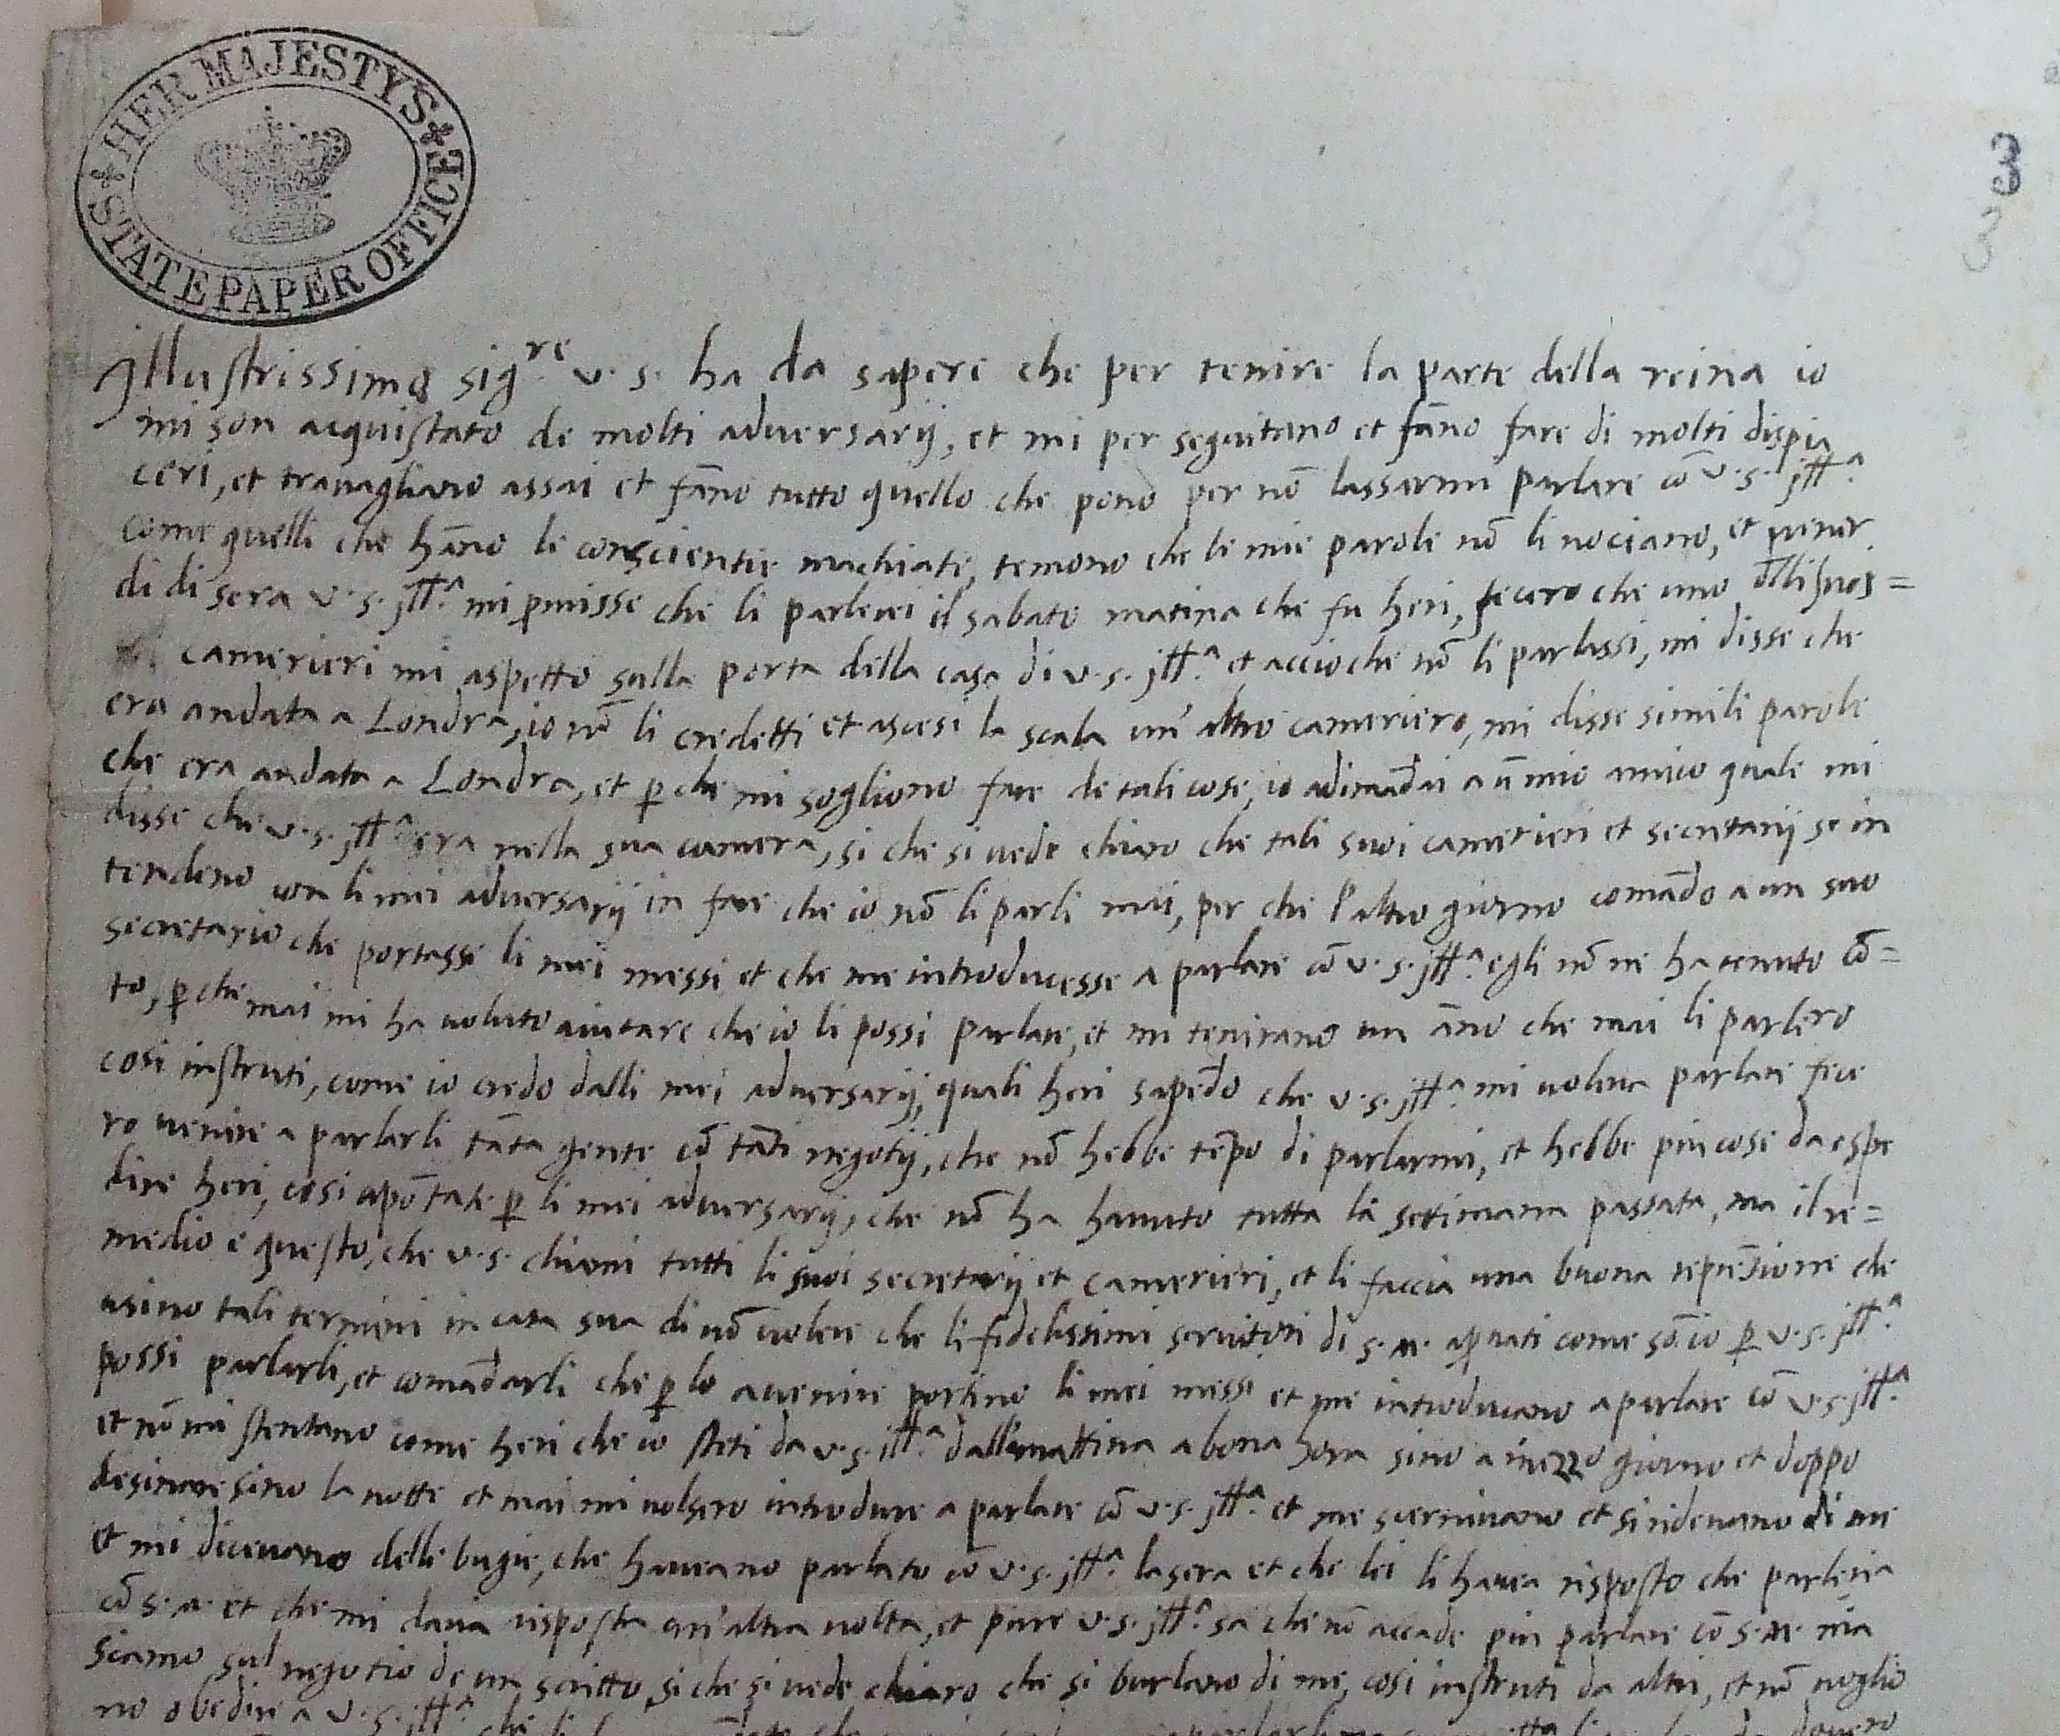 HER MAJESTY'S STATE PAPER OFFICE
3
3
Illustrissimo sig.re v. s. ha da sapere che per tenire la parte della reina io
mi son acquistato de molti adversarij, et mi perseguitano et fāno fare di molti dispia
ceri, et travagliano assai et fāno tutto quello che ponō per nō lassarmi parlare cō v. s. Ill.a
come quelli che hāno le conscientie machiate, temono che le mie parole nō li nociano, et vener
di di sera v. s. Ill.a mi pmisse che li parlerei il sabato matina che fu heri, fecero che uno dlli suoi =
camerieri mi aspetto sulla porta della casa di v. s. Ill.a et accioche nō li parlassi, mi disse che
era andata a Londra, io nō li credetti et ascesi la scala un' altro cameriero, mi disse simili parole
che era andata a Londra, et p che mi sogliono fare de tali cose, io adimādai a ū mio amico quale mi
disse che v. s. Ill.a era nella sua camera, si che si vede chiaro che tali suoi camerieri et secretarij se in
tendeno con li mei adversarij in fare che io nō li parli mai, per che l'altro giorno comādo a un suo
secretario che portassi li mei messi et che me introducesse a parlare cō v. s. Ill.a egli nō ne ha tenuto cō=
to, p che mai mi ha voluto aiutare che io li possi parlare, et mi tenirano un āno che mai li parlero
cosi instruti, come io credo dalli mei adversarij, quali heri sapēdo che v. s. Ill.a mi voleva parlare fece
ro venire a parlarli tāta gente cō tāti negotij, che nō hebbe tēpo di parlarmi, et hebbe piu cose da espe
dire heri, cosi apōtate p li mei adversarij, che nō ha havuto tutta la settimana passata, ma il re=
medio e questo, che v. s. chiami tutti li suoi secretarij et camerieri, et li faccia una buona reprēsione che
usino tali termini in casa sua di nō volere che li fidelissimi servitori di s. m. apvati come sō io p v. s. Ill.a
possi parlarli, et comādarli che p lo avenire portino li mei messi et me introducano a parlare cō v. s. Ill.a
et nō mi stentano come heri che io steti da v. s. Ill.a dalla mattina a bona hora sino a mezzo giorno et doppo
desinare sino la notte et mai mi volsero introdure a parlare cō v. s. Ill.a et me scernivano et si ridevano di me
et mi dicevano delle bugie, che haveano parlato cō v. s. Ill.a la sera et che lei li havea risposto che parleria
cō s. m. et che mi daria risposta un' altra volta, et pure v. s. Ill.a sa che nō accade piu parlare cō s. m. ma
siamo sul negotio de un scritto, si che si vede chiaro che si burlano di me, cosi instruti da altri, et nō voglio
no obedire a v. s. Ill.a che li